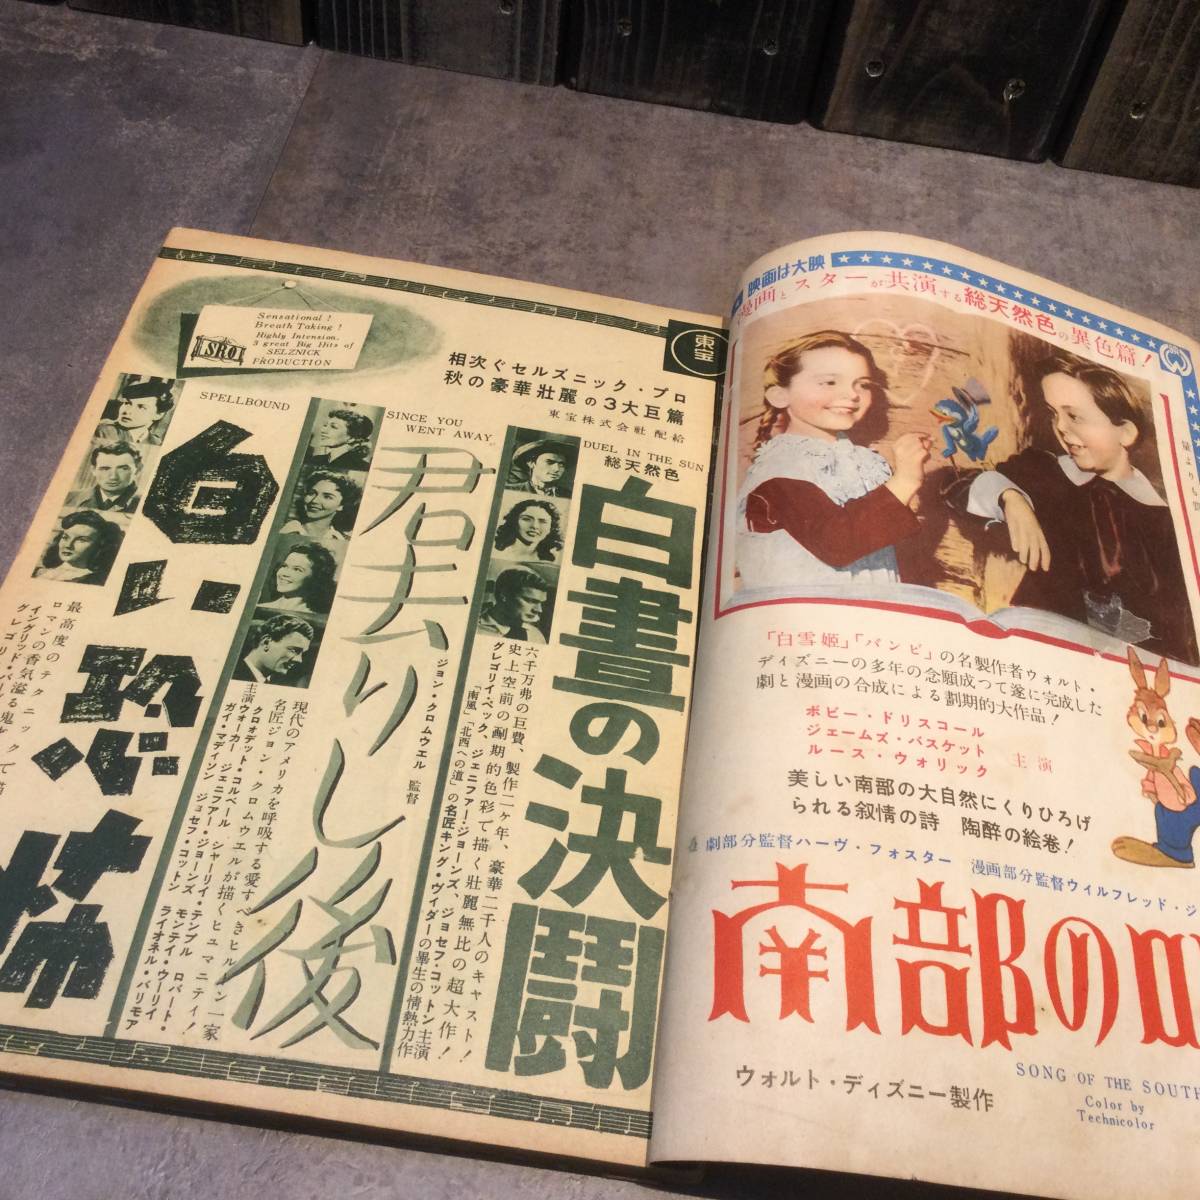 Sensational!
Breath Taking!
Highly Intension.
3 great Big Hits of
SELZNICK
PRODUCTION
SRO
東宝
相次ぐセルズニック・プロ
秋の豪華壯麗の3大巨篇
東宝株式会社配給
DUEL IN THE SUN
総天然色
白晝の決闘
六千万弗の巨費、製作二ヶ年、豪華二千人のキャスト!
史上空前の劃期的色彩で描く壯麗無比の超大作!
グレゴリイ・ペック、ジェニファー・ジョーンズ、ジョセフ・コットン主演
「南風」「北西への道」の名匠キング・ヴィダーの畢生の情熱力作
SINCE YOU
WENT AWAY
君去りし後
ジョン・クロムウエル 監督
現代のアメリカを呼吸する愛すべきヒルトン一家
名匠ジョン・クロムウエルが描くヒュマニティ!
主演
クロォデット・コルベール シャーリイ・テンプル ロバート・
ウォーカー ジェニファー・ジョーンズ モンティ・ウーリイ
ガイ・マディソン ジョセフ・コットン ライオネル・バリモア
SPELLBOUND
白い恐怖
最高度のテクニック
ロマンの香気溢る
イングリッド・バー
グレゴリ
映画は大映
漫画とスターが共演する総天然色の異色篇!
「白雪姫」「バンビ」の名製作者ウォルト・
ディズニーの多年の念願成つて遂に完成した
劇と漫画の合成による劃期的大作品!
ボビー・ドリスコール
ジェームズ・バスケット
ルース・ウォリック
主演
美しい南部の大自然にくりひろげ
られる叙情の詩 陶醉の絵巻!
劇部分監督ハーヴ・フォスター
漫画部分監督ウィルフレッド・ジ
南部の
SONG OF THE SOUTH
Color by
Technicolor
ウォルト・ディズニー製作